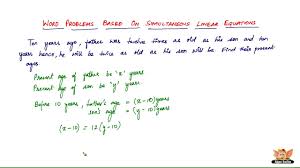 Word Problems Based On Simultaneous Linear Equations
Ten years ago, father was twelve times as old as his son and ten
years hence, he will be twice as old as his son will be. Find their present
ages.
Present age of father be 'x' years
Present age of son be 'y' years
Before 10 years, father's age = (x-10) years
son's age = (y-10) years
(x-10) = 12(y-10)